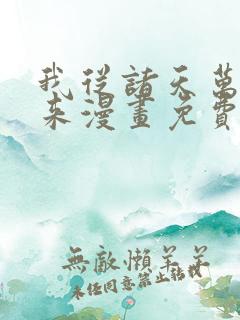 我從諸天萬
來漫畫免費
無敵懶羊羊
未任同意禁止轉載